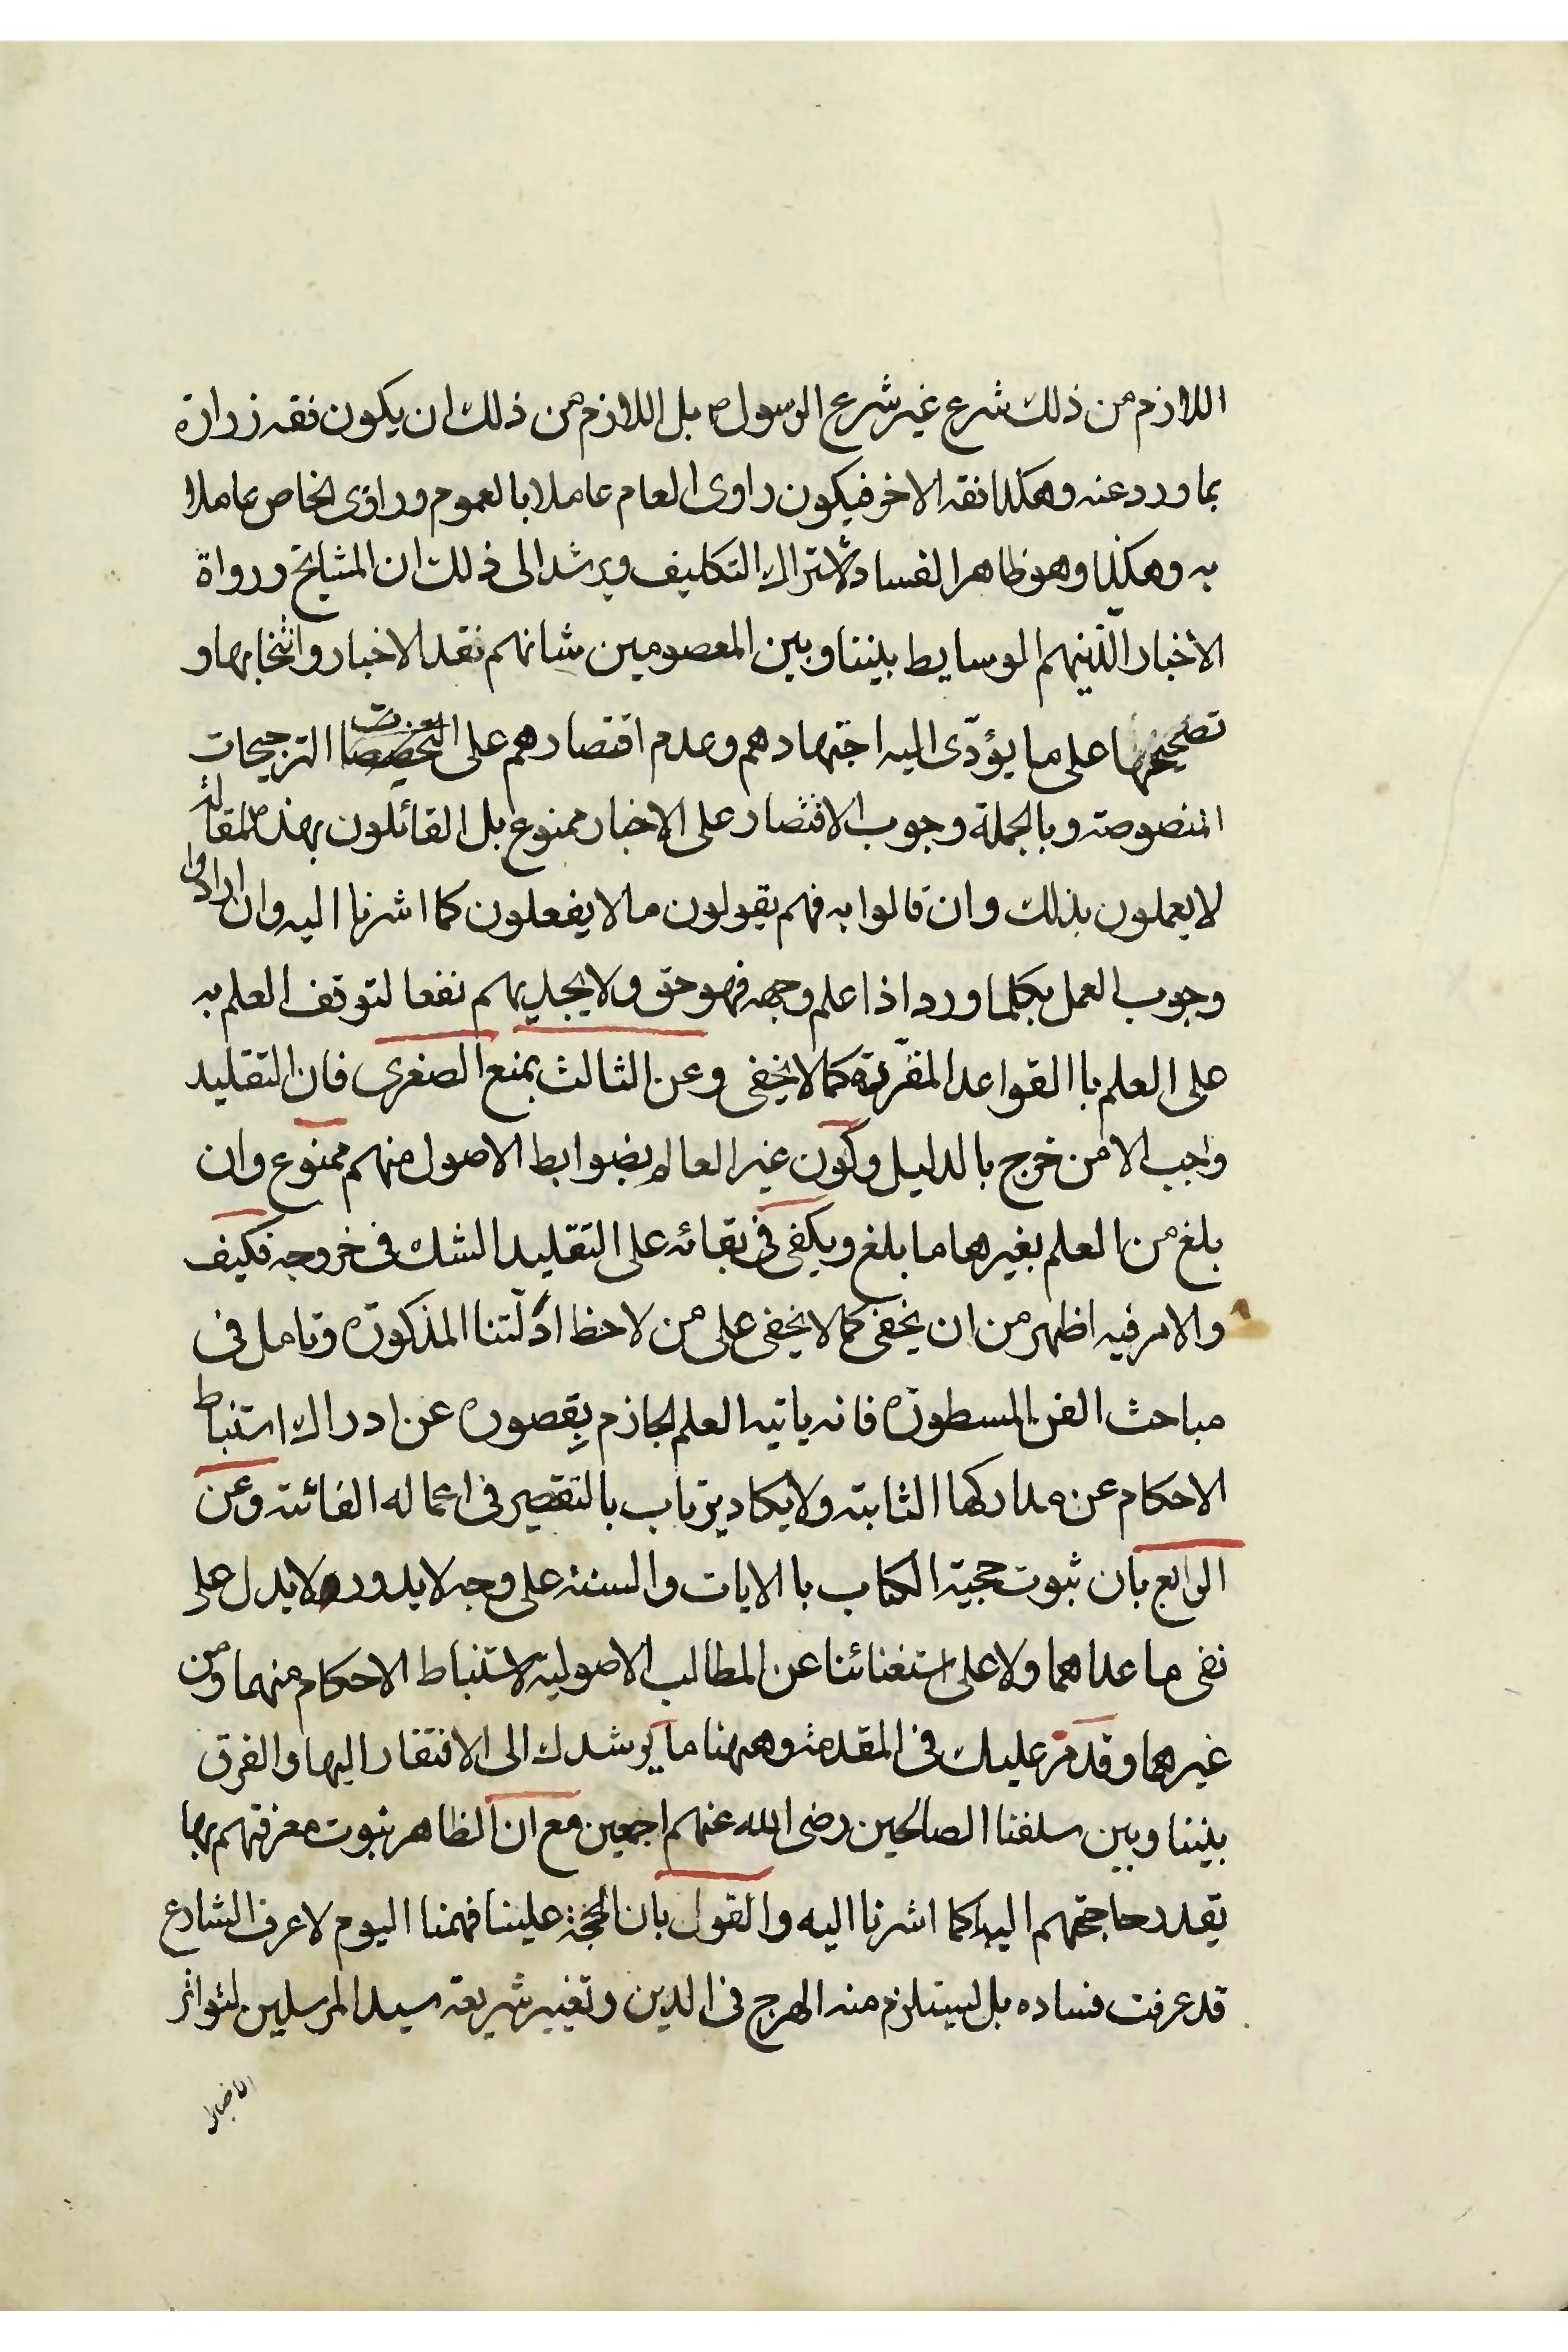 اللازم من ذلك شرع غير شرع الرسول ص بل اللازم من ذلك ان يكون فقه زرارة
بما ورد عنه وهكذا فقه الاخر فيكون راوى العام عاملا بالعموم وراوى الخاص عاملا
به وهكذا وهو ظاهر الفساد لاشتراك التكليف ويرشد الى ذلك ان المشايخ ورواة
الاخبار الذينهم الوسايط بيننا وبين المعصومين شانهم نقد الاخبار وانتخابها و
تصحيحها على ما يؤدّى اليه اجتهادهم وعدم اقتصارهم على الترجيحات
المنصوصة وبالجملة وجوب الاقتصار على الاخبار ممنوع بل القائلون بهذه المقالة
لا يعملون بذلك وان قالوا به فهم يقولون ما لا يفعلون كما اشرنا اليه وان ارادوا
وجوب العمل بكلما ورد اذا علم وجهه فهو حق ولا يجديهم نفعا لتوقف العلم به
على العلم باالقواعد المقرّرة كما لا يخفى وعن الثالث بمنع الصغرى فان التقليد
واجب الا من خرج بالدليل وكون غير العالم بضوابط الاصول منهم ممنوع وان
بلغ من العلم بغيرها ما بلغ ويكفى فى بقائه على التقليد الشك فى خروجه فكيف
والامر فيه اظهر من ان يخفى كما لا يخفى على من لاحظ ادلّتنا المذكورة وتامل فى
مباحث الفن المسطورة فانه ياتيه العلم الجازم بقصوره عن ادراك استنباط
الاحكام عن مداركها الثابتة ولا يكاد يرتاب بالتقصير فى اعماله الفائتة وعن
الرابع بان ثبوت حجية الكتاب باالايات والسنة على وجه لا يدور لا يدل على
نفى ما عداهما ولا على استغنائنا عن المطالب الاصولية لاستنباط الاحكام منهما ومن
غيرهما وقد مرّ عليك فى المقدمة وههنا ما يرشدك الى الافتقار اليها والفرق
بيننا وبين سلفنا الصالحين رضى الله عنهم اجمعين مع ان الظاهر ثبوت معرفتهم بها
بقدر حاجتهم اليها كما اشرنا اليه والقول بان الحجة علينا فهمنا اليوم لا عرف الشارع
قد عرفت فساده بل ليستلزم منه الهرج فى الدين وتغيير شريعة سيد المرسلين لتواتر
الاخبار